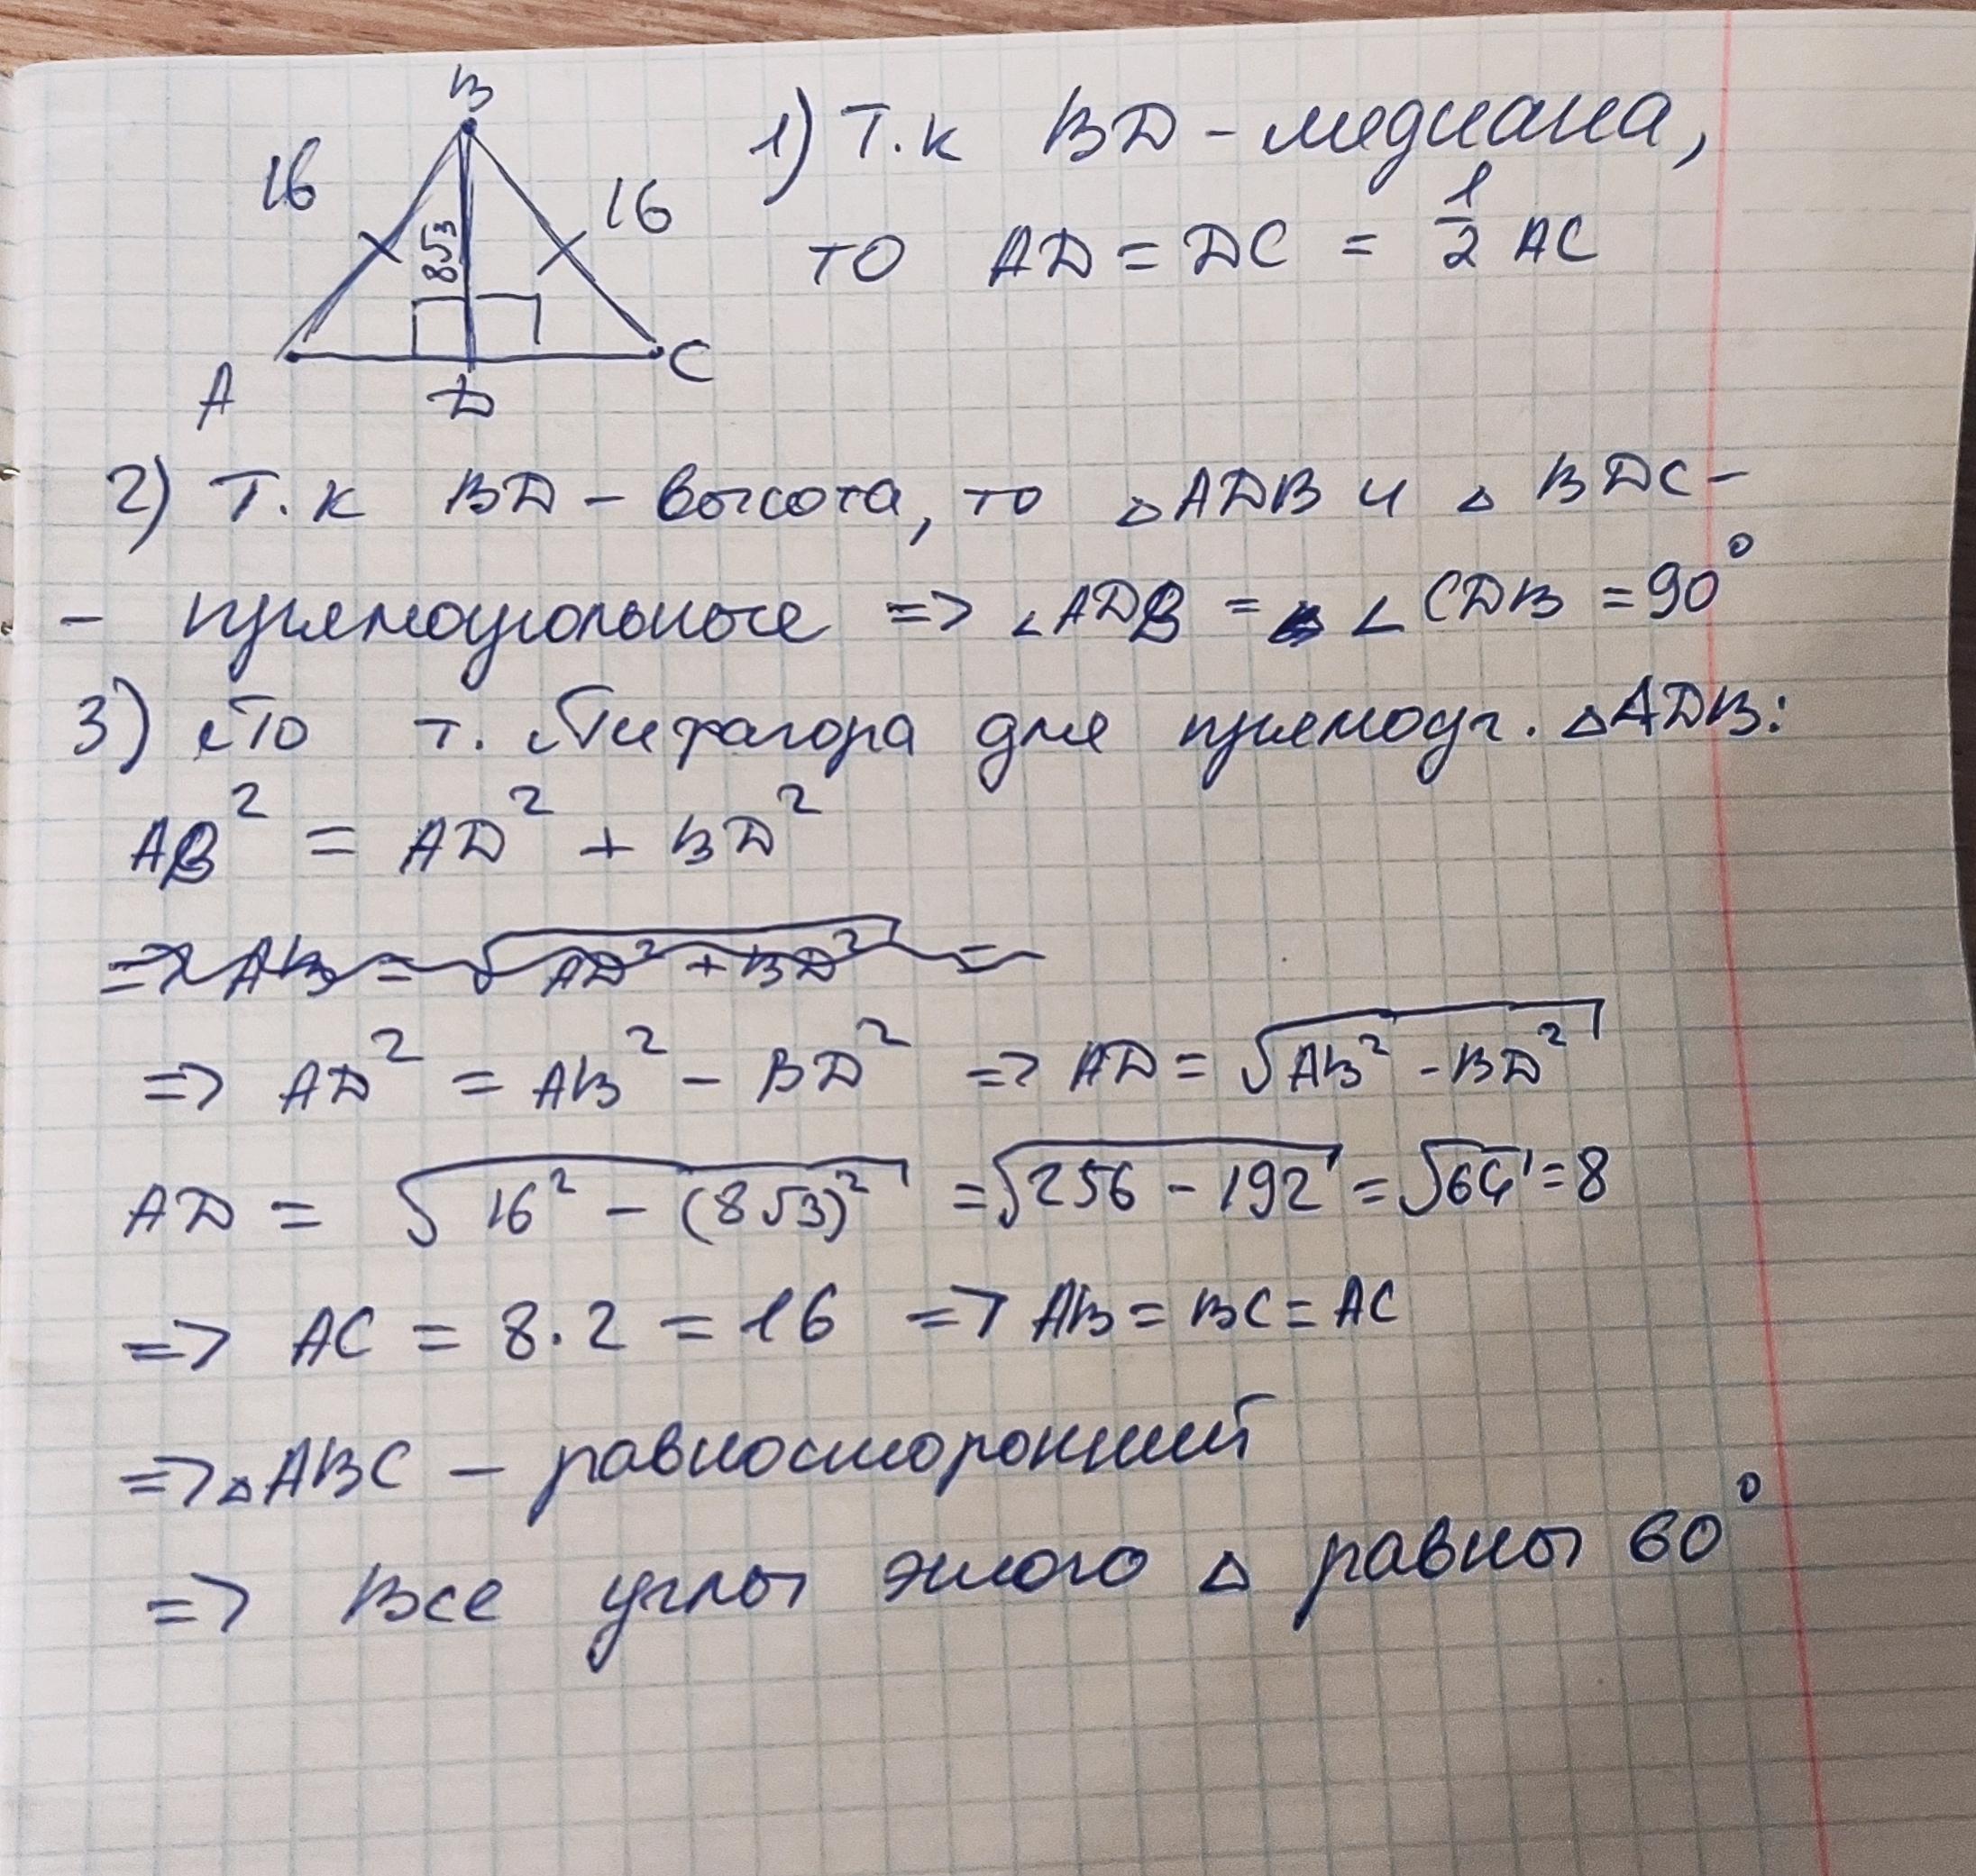 B
16
16
8√3
A
D
C
1) Т.к BD - медиана,
то AD = DC = 1/2 AC
2) Т.к BD - высота, то △ADB и △BDC -
- прямоугольные => ∠ADB = ∠CDB = 90°
3) По т. Пифагора для прямоуг. △ADB:
AB² = AD² + BD²
=> AB = √(AD² + BD²) =
=> AD² = AB² - BD² => AD = √(AB² - BD²)
AD = √(16² - (8√3)²) = √(256 - 192) = √64 = 8
=> AC = 8 · 2 = 16 => AB = BC = AC
=> △ABC - равносторонний
=> Все углы этого △ равны 60°